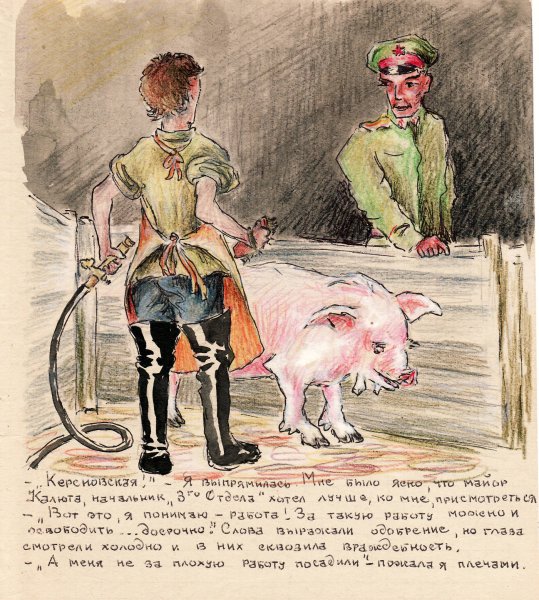 - „Керсновская!" - Я выпрямилась Мне было ясно, что майор
Калюта, начальник „3го Отдела" хотел лучше, ко мне, присмотреться
- „Вот это, я понимаю - работа! За такую работу можно и
освободить ... досрочно". Слова выражали одобрение, но глаза
смотрели холодно и в них сквозила враждебность.
- „А меня не за плохую работу посадили" - пожала я плечами.